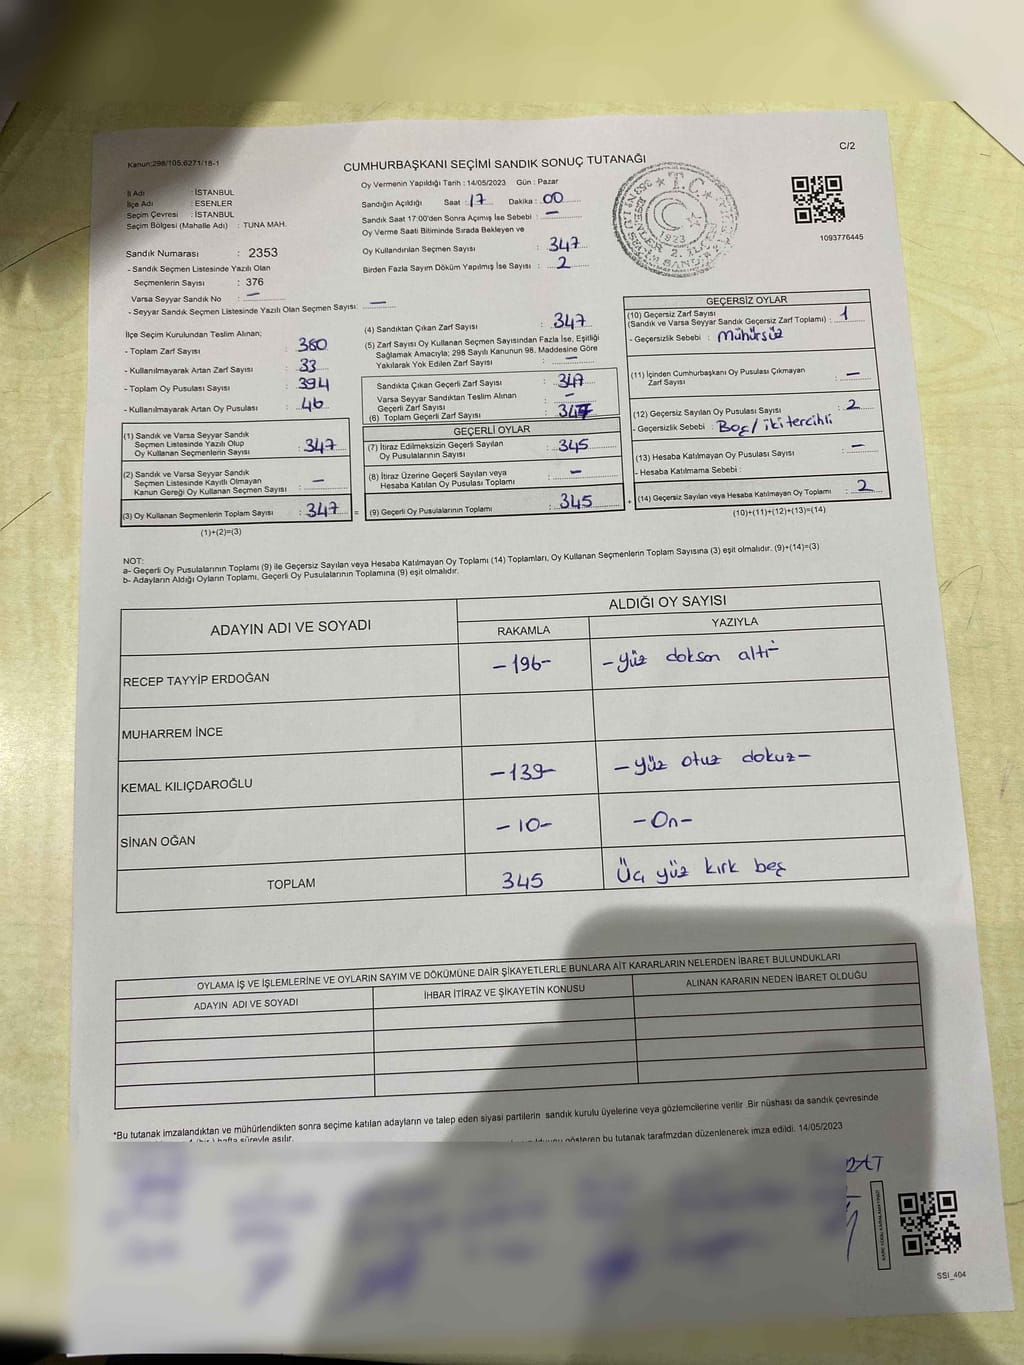 Kanun:298/105,6271/18-1
C/2
CUMHURBAŞKANI SEÇİMİ SANDIK SONUÇ TUTANAĞI
İl Adı : İSTANBUL
İlçe Adı : ESENLER
Seçim Çevresi : İSTANBUL
Seçim Bölgesi (Mahalle Adı) : TUNA MAH.
Sandık Numarası : 2353
- Sandık Seçmen Listesinde Yazılı Olan
Seçmenlerin Sayısı : 376
Varsa Seyyar Sandık No : —
- Seyyar Sandık Seçmen Listesinde Yazılı Olan Seçmen Sayısı: —
Oy Vermenin Yapıldığı Tarih : 14/05/2023 Gün : Pazar
Sandığın Açıldığı Saat : 17 Dakika : 00
Sandık Saat 17:00'den Sonra Açımış İse Sebebi : —
Oy Verme Saati Bitiminde Sırada Bekleyen ve
Oy Kullandırılan Seçmen Sayısı : 347
Birden Fazla Sayım Döküm Yapılmış İse Sayısı : 2
T.C.
1923
1093776445
İlçe Seçim Kurulundan Teslim Alınan;
- Toplam Zarf Sayısı : 380
- Kullanılmayarak Artan Zarf Sayısı : 33
- Toplam Oy Pusulası Sayısı : 394
- Kullanılmayarak Artan Oy Pusulası : 46
(1) Sandık ve Varsa Seyyar Sandık
Seçmen Listesinde Yazılı Olup
Oy Kullanan Seçmenlerin Sayısı : 347
(2) Sandık ve Varsa Seyyar Sandık
Seçmen Listesinde Kayıtlı Olmayan
Kanun Gereği Oy Kullanan Seçmen Sayısı : —
(3) Oy Kullanan Seçmenlerin Toplam Sayısı : 347 =
(1)+(2)=(3)
(4) Sandıktan Çıkan Zarf Sayısı : 347
(5) Zarf Sayısı Oy Kullanan Seçmen Sayısından Fazla İse, Eşitliği
Sağlamak Amacıyla; 298 Sayılı Kanunun 98. Maddesine Göre
Yakılarak Yok Edilen Zarf Sayısı : —
Sandıkta Çıkan Geçerli Zarf Sayısı : 347
Varsa Seyyar Sandıktan Teslim Alınan
Geçerli Zarf Sayısı : —
(6) Toplam Geçerli Zarf Sayısı : 347
GEÇERLİ OYLAR
(7) İtiraz Edilmeksizin Geçerli Sayılan
Oy Pusulalarının Sayısı : 345
(8) İtiraz Üzerine Geçerli Sayılan veya
Hesaba Katılan Oy Pusulası Toplamı : —
(9) Geçerli Oy Pusulalarının Toplamı : 345 +
GEÇERSİZ OYLAR
(10) Geçersiz Zarf Sayısı
(Sandık ve Varsa Seyyar Sandık Geçersiz Zarf Toplamı) : 1
- Geçersizlik Sebebi : Mühürsüz
(11) İçinden Cumhurbaşkanı Oy Pusulası Çıkmayan
Zarf Sayısı : —
(12) Geçersiz Sayılan Oy Pusulası Sayısı : 2
- Geçersizlik Sebebi : Boş/ iki tercihli
(13) Hesaba Katılmayan Oy Pusulası Sayısı : —
- Hesaba Katılmama Sebebi :
(14) Geçersiz Sayılan veya Hesaba Katılmayan Oy Toplamı : 2
(10)+(11)+(12)+(13)=(14)
NOT:
a- Geçerli Oy Pusulalarının Toplamı (9) ile Geçersiz Sayılan veya Hesaba Katılmayan Oy Toplamı (14) Toplamları, Oy Kullanan Seçmenlerin Toplam Sayısına (3) eşit olmalıdır. (9)+(14)=(3)
b- Adayların Aldığı Oyların Toplamı, Geçerli Oy Pusulalarının Toplamına (9) eşit olmalıdır.
ADAYIN ADI VE SOYADI
ALDIĞI OY SAYISI
RAKAMLA YAZIYLA
RECEP TAYYİP ERDOĞAN -196- -yüz dokson altı-
MUHARREM İNCE
KEMAL KILIÇDAROĞLU -139- -yüz otuz dokuz-
SİNAN OĞAN -10- -On-
TOPLAM 345 Üç yüz kırk beş
OYLAMA İŞ VE İŞLEMLERİNE VE OYLARIN SAYIM VE DÖKÜMÜNE DAİR ŞİKAYETLERLE BUNLARA AİT KARARLARIN NELERDEN İBARET BULUNDUKLARI
ADAYIN ADI VE SOYADI İHBAR İTİRAZ VE ŞİKAYETİN KONUSU ALINAN KARARIN NEDEN İBARET OLDUĞU
*Bu tutanak imzalandıktan ve mühürlendikten sonra seçime katılan adayların ve talep eden siyasi partilerin sandık kurulu üyelerine veya gözlemcilerine verilir .Bir nüshası da sandık çevresinde
hafta süreyle asılır.
gösteren bu tutanak tarafımzdan düzenlenerek imza edildi. 14/05/2023
SSI_404